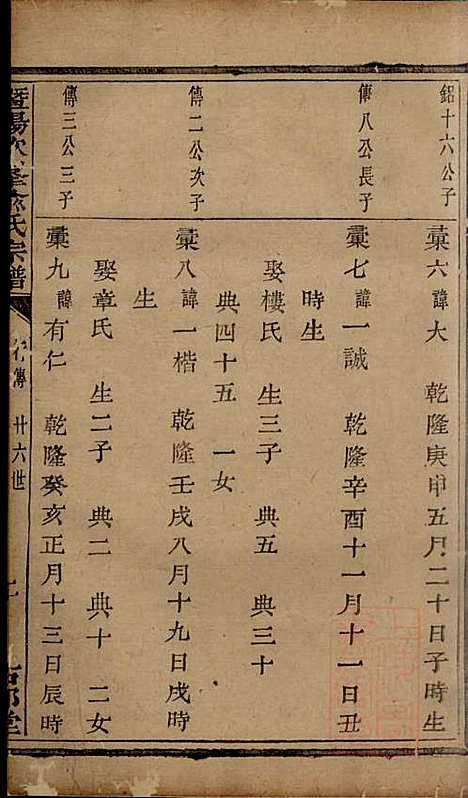 鋁十六公子
橐六 諱大 乾隆庚申五月二十日子時生
傳八公長子
橐七 諱一誠 乾隆辛酉十一月十一日丑
時生
娶樓氏 生三子 典五 典三十
典四十五 一女
傳二公次子
橐八 諱一楷 乾隆壬戌八月十九日戌時
生
娶章氏 生二子 典二 典十 二女
傳三公三子
橐九 諱有仁 乾隆癸亥正月十三日辰時
暨陽次峯俞氏宗譜
行傳 廿六世